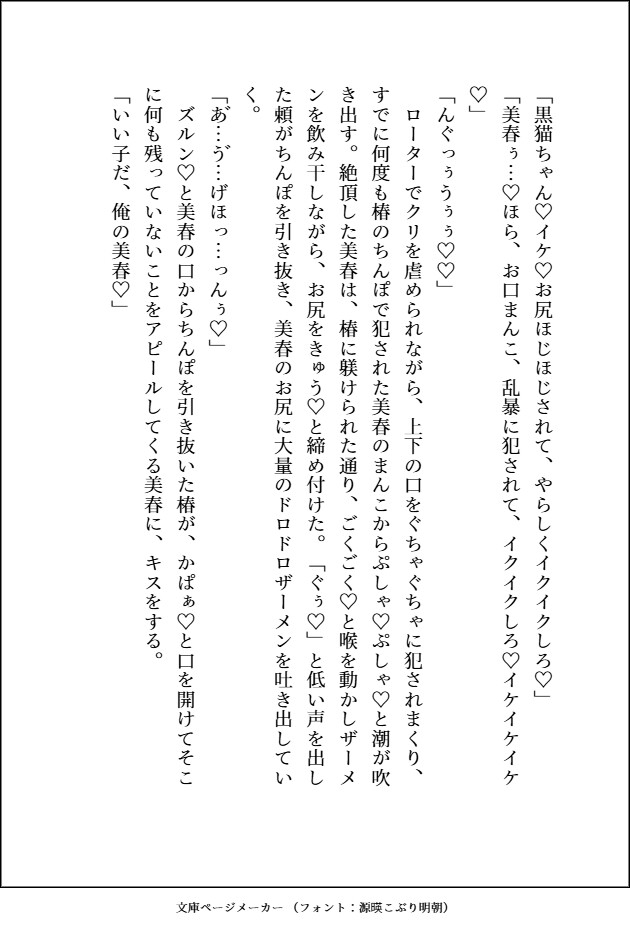 「黒猫ちゃん♡イケ♡お尻ほじほじされて、やらしくイクイクしろ♡」
「美春ぅ…♡ほら、お口まんこ、乱暴に犯されて、イクイクしろ♡イケイケイケ
♡」
「んぐっぅうぅぅ♡♡」
　ローターでクリを虐められながら、上下の口をぐちゃぐちゃに犯されまくり、
すでに何度も椿のちんぽで犯された美春のまんこからぷしゃ♡ぷしゃ♡と潮が吹
き出す。絶頂した美春は、椿に躾けられた通り、ごくごく♡と喉を動かしザーメ
ンを飲み干しながら、お尻をきゅう♡と締め付けた。「ぐぅ♡」と低い声を出し
た頼がちんぽを引き抜き、美春のお尻に大量のドロドロザーメンを吐き出してい
く。
「あ゙…ゔ…げほっ…っんぅ♡」
　ズルン♡と美春の口からちんぽを引き抜いた椿が、かぱぁ♡と口を開けてそこ
に何も残っていないことをアピールしてくる美春に、キスをする。
「いい子だ、俺の美春♡」
文庫ページメーカー （フォント：源暎こぶり明朝）